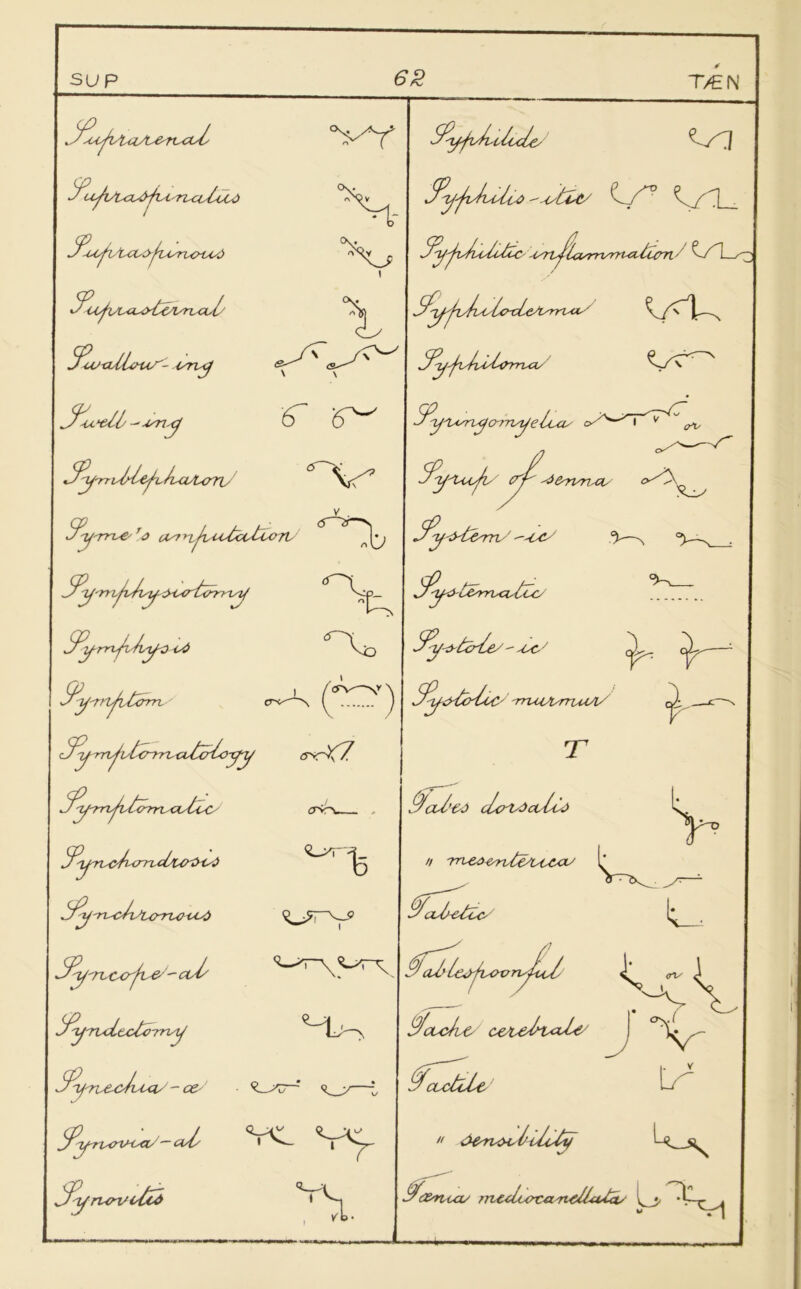 SUP 62 TÆN
Suprarenal
Supraspinalis
Supraspinous
Suprasternal
Swallow - ing
Swell - ing
Symblepharon
Syme's amputation
Symphysiotomy
Symphysis
Symptom
Symptomatology
Symptomatic
Synchondrosis
Synchronous
Syncope - al
Syndectomy
Synechia - æ
Synovia - al
Synovitis
Syphilide
Syphilis - itic
Syphilitic inflammation
Syphiloderma
Syphiloma
Syringomyelia
Syrup of senna
System - ic
Systematic
Systole - ic
Systolic murmur
T
Tabes dorsalis
" mesenterica
Tabetic
Tablespoonful
Tache cerebrale
Tactile
" sensibility
Tænia mediocanellata